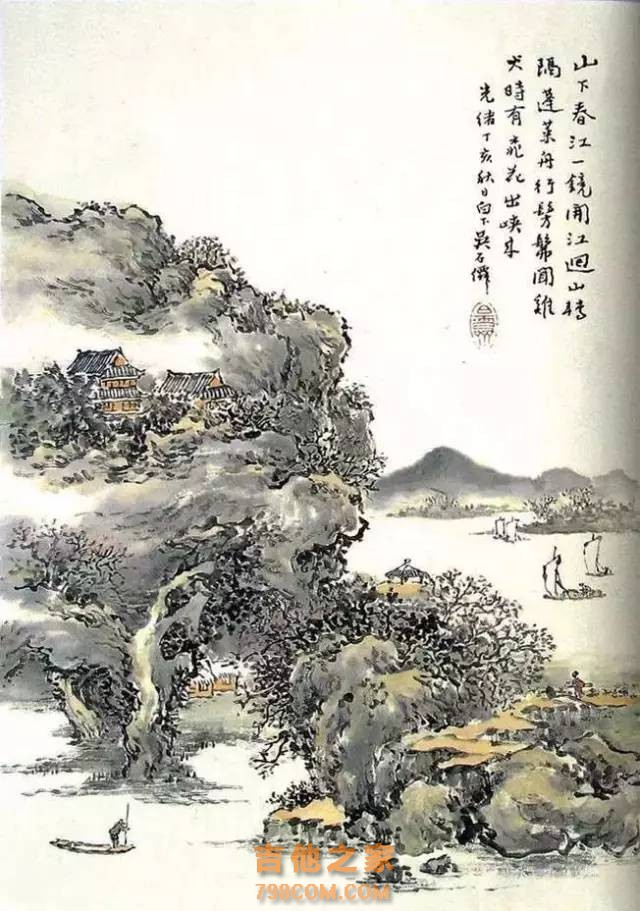 山下春江一鏡開江迴山轉
隔蓬萊舟行髣髴聞雞
犬時有飛花出峽来
光緒丁亥秋日白下吳石僊
吉他之家
798COM.COM